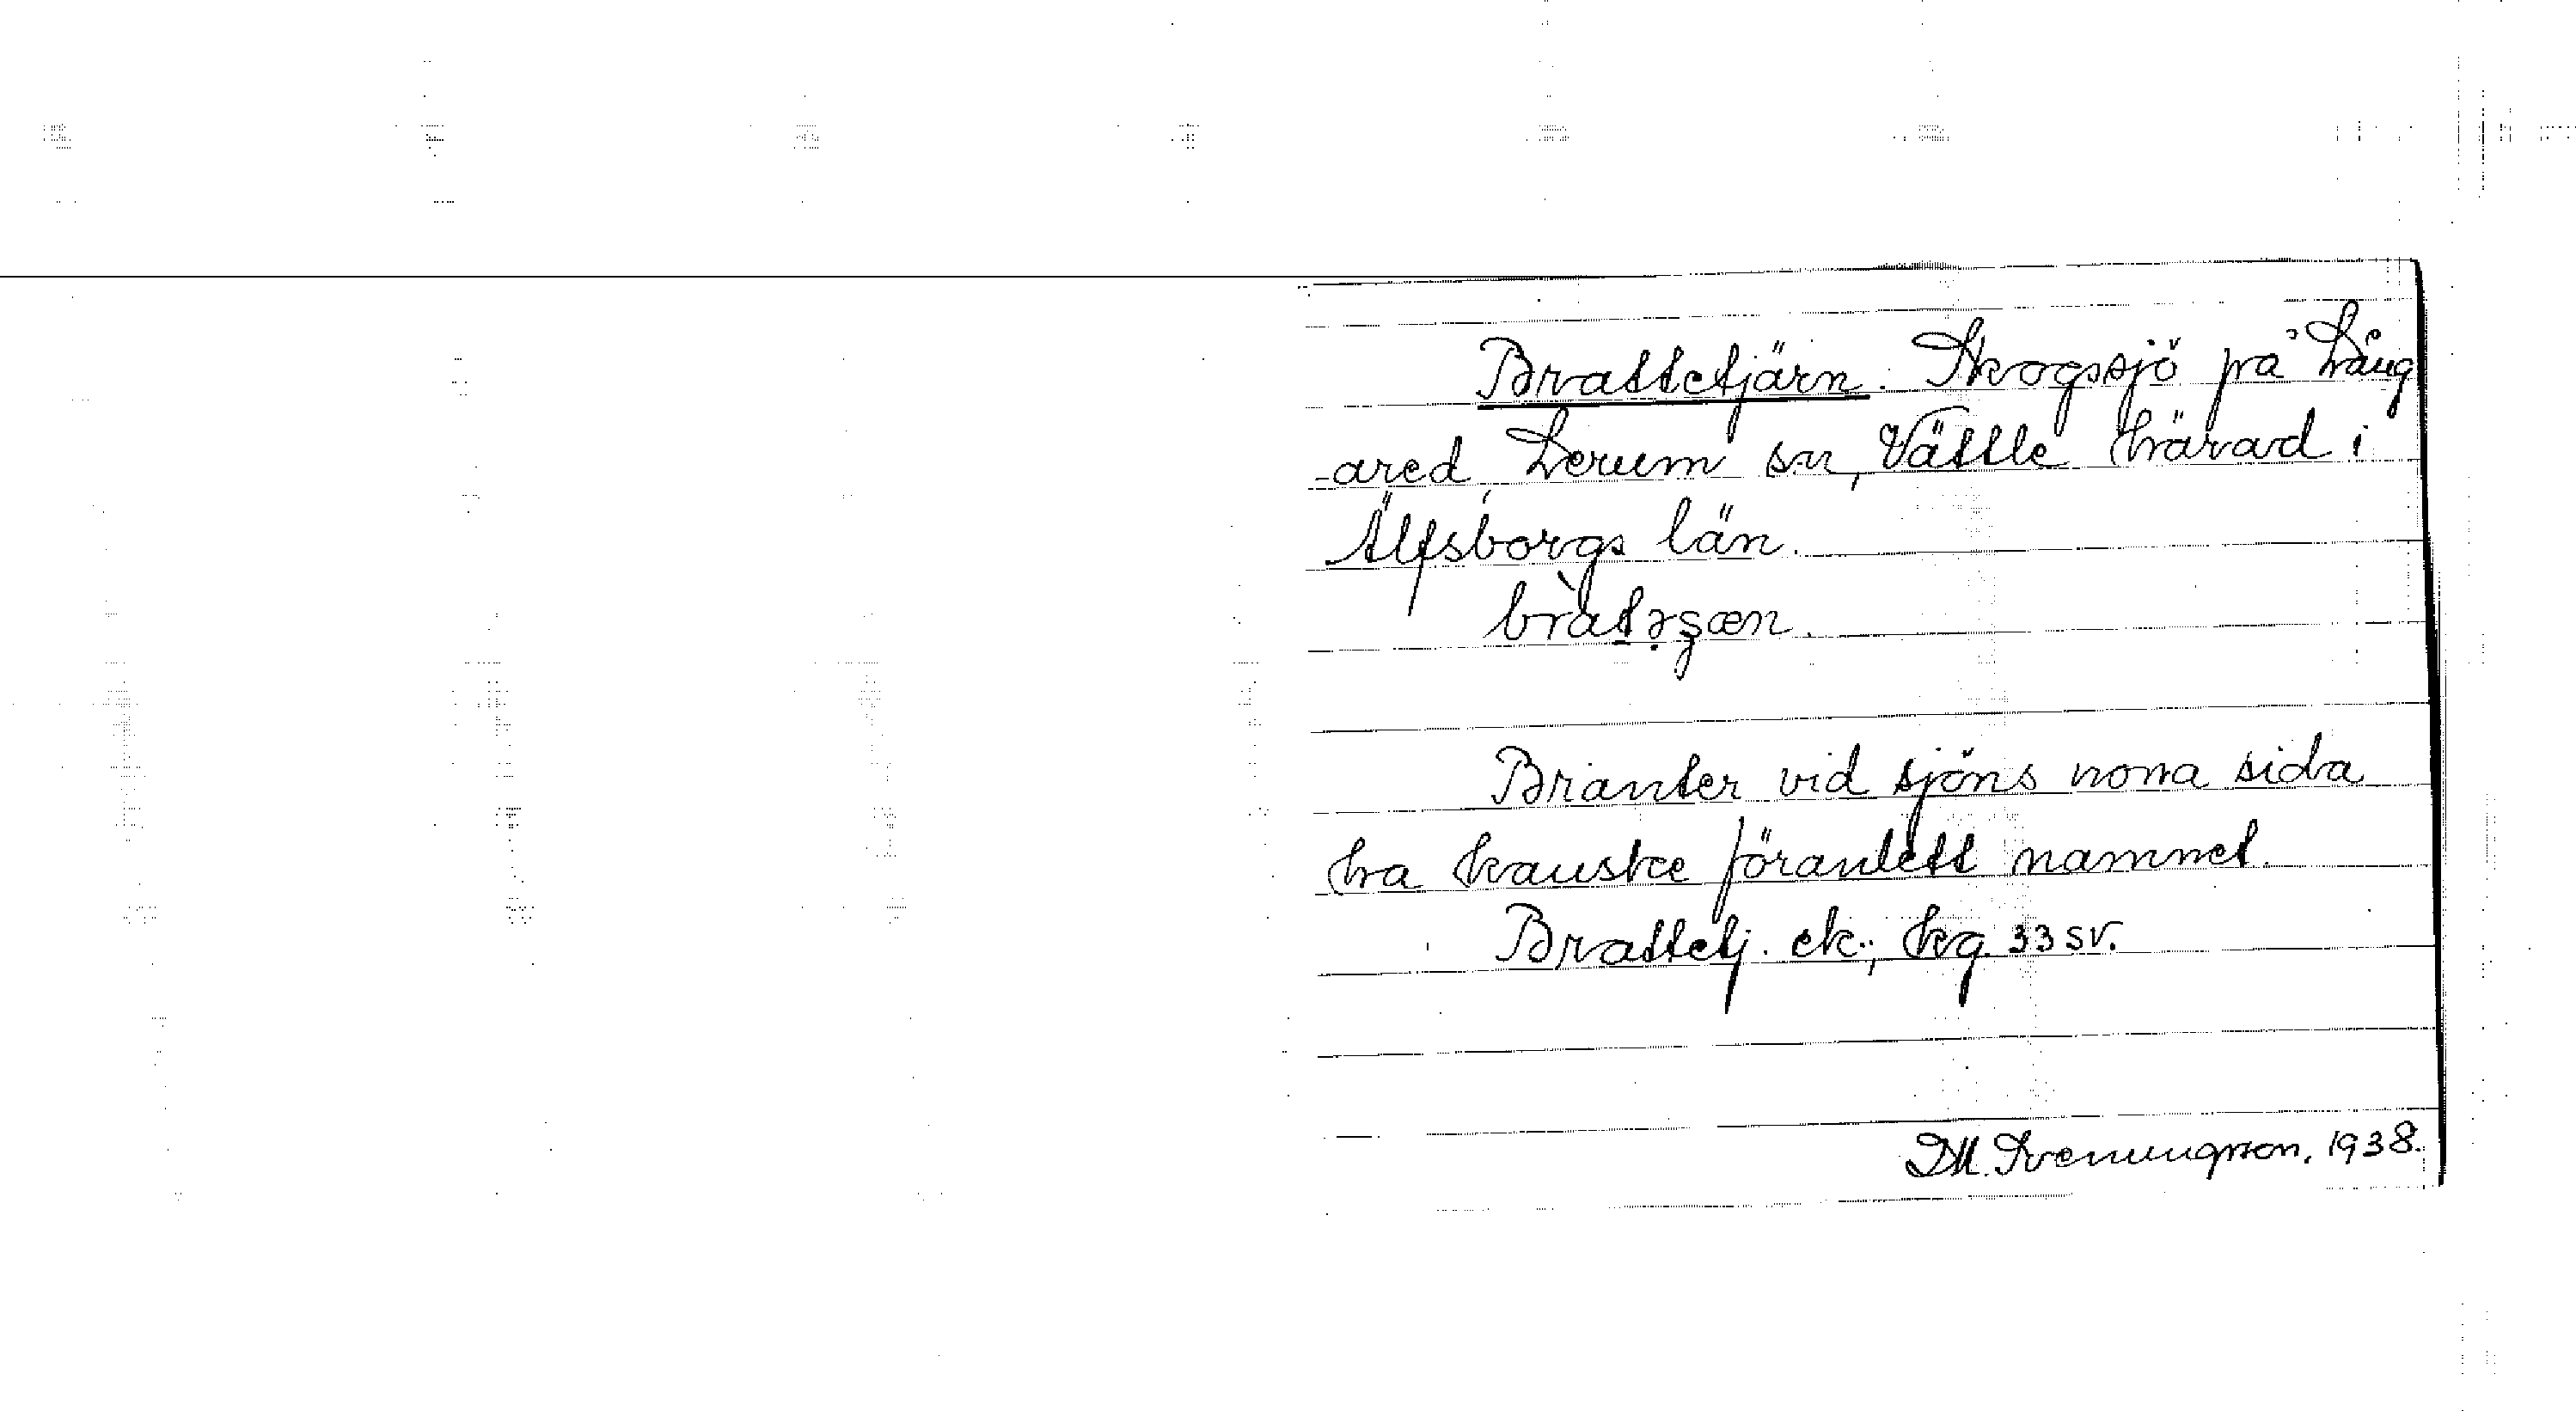 Brattetjärn. Skogssjö på Lång
-ared, Lerum sn, Vättle härad i
Älfsborgs län.
bràtəʂæn.
Branter vid sjöns norra sida
ha kanske föranlett namnet.
Brattetj. ek.; kg. 33 SV.
D.M. Svenungsson. 1938.